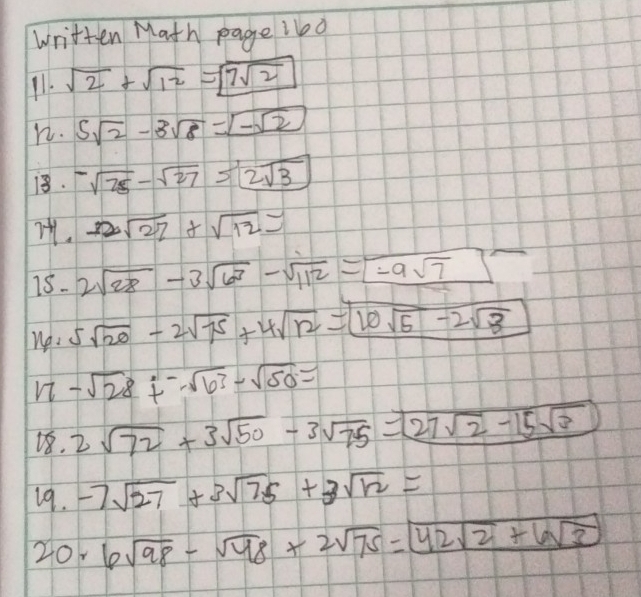 Written Math page 160
11. √2 + √12 = 7√2
12. 5√2 - 3√8 = -√2
13. -√75 - √27 = 2√3
14. -2√27 + √12 =
15- 2√28 - 3√63 - √112 = -9√7
16. 5√20 - 2√75 + 4√12 = 10√5 - 2√3
17 - √28 + -√63 - √50 =
18. 2√72 + 3√50 - 3√75 = 27√2 - 15√3
19. -7√27 + 3√75 + 3√12 =
20. 6√98 - √48 + 2√75 = 42√2 + 6√3